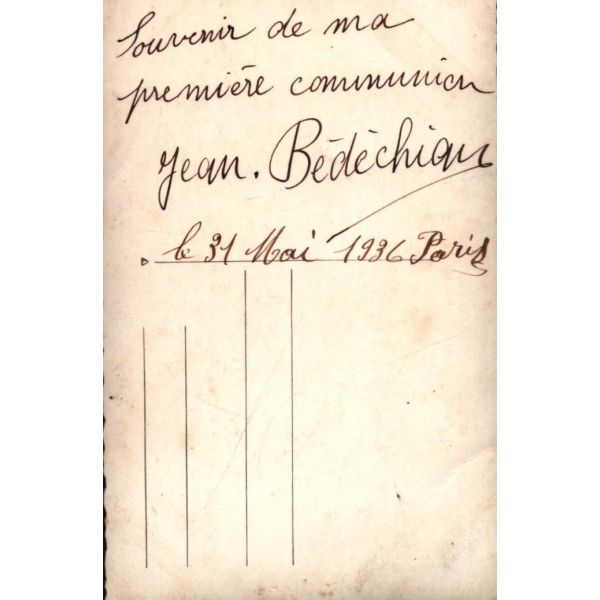 Souvenir de ma
première communion
Jean. Bédèchian
le 31 Mai 1936 Paris